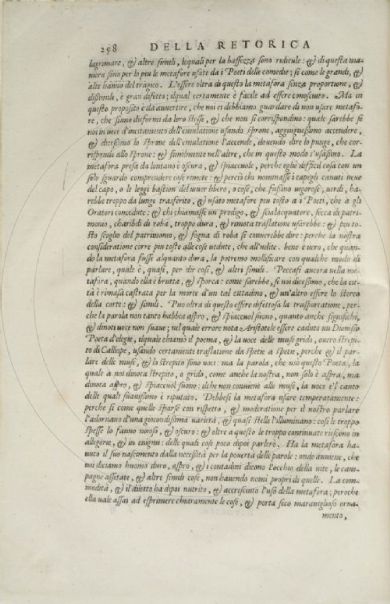 298 DELLA RETORICA
lagrimare, & altre simili, lequali per la bassezza sono ridicule: & di questa ma-
niera sono per lo piu le metafore usate da i Poeti delle comedie; si come le grandi, &
alte hanno del tragico. L'essere oltra di questo la metafora senza proportione, &
dissimile, è gran difetto; ilqual certamente è facile ad essere conosciuto. Ma in
questo proposito è da avvertire, che noi ci debbiamo guardare di non usare metafo-
re, che siano disformi da loro stesse, & che non si corrispondino: quale sarebbe se
noi in vece d'incitamento dell'emulatione usando sprone, aggiugnessimo accendere,
& dicessimo lo sprone dell'emulatione l'accende, dovendo dire lo punge, che cor-
risponde allo sprone: & similmente nell'altre, che in questo modo s'usassino. La
metafora presa da lontano è oscura, & spiacevole, perche egli è difficil cosa con un
solo sguardo comprendere cose remote: & perciò chi nominasse i capegli canuti neve
del capo, o le leggi bastion del viver libero, o cose, che fussino vigorose, verdi, ha-
rebbe troppo da lunge trasferito, & usato metafore piu tosto a i Poeti, che a gli
Oratori concedute: & chi chiamasse un prodigo, & scialacquatore, secca di patri-
monio, charibdi di roba, troppo dura, & rimota traslatione usarebbe: & piu to-
sto scoglio del patrimonio, & fogna di roba si converrebbe dire: perche la nostra
consideratione corre piu tosto alle cose vedute, che all'udite. bene è vero, che quan-
do la metafora fusse alquanto dura, la potremo mollificare con qualche modo di
parlare, quale è, quasi, per dir cosi, & altri simili. Peccasi ancora nella me-
tafora, quando ella è brutta, & sporca: come sarebbe, se noi dicessimo, che la cit-
tà è rimasa castrata per la morte d'un tal cittadino, & un'altro essere lo sterco
della corte: & simili. Puo oltra di questo essere difettosa la traslatione, per-
che la parola non tanto habbia aspro, & spiacevol suono, quanto anche significhi,
& dinoti voce non suave; nel quale errore nota Aristotele essere caduto un Dionisio
Poeta d'elegie, ilquale chiamò il poema, & la voce delle musi grido, overo strepi-
to di Calliope, usando certamente traslatione da spetie a spetie, perche & il par-
lare delle muse, & lo strepito sono voci: ma la parola, che usò questo Poeta, la
quale a noi dinota strepito, o grido, come anche la nostra, non solo è aspra, ma
dinota aspro, & spiacevol suono: ilche non conviene alle muse, la voce e'l canto
delle quali suavissimo è riputato. Debbesi la metafora usare temperatamente:
perche si come quelle sparse con rispetto, & moderatione per il nostro parlare
l'adornano d'una gioconda varietà, & quasi stelle l'alluminano: cosi le troppo
spesse lo fanno noioso, & oscuro: & oltre a questo se le troppo continuate riescono in
allegorie, & in enigmi: delle quali cose poco dipoi parlerò. Ha la metafora ha-
vuto il suo nascimento dalla necessità per la povertà delle parole: onde avviene, che
noi diciamo huomo duro, aspro, & i contadini dicono l'occhio della vite, le cam-
pagne assetate, & altre simili cose, non havendo nomi propri di quelle. La com-
modità, & il diletto ha dipoi nutrito, & accresciuto l'uso della metafora; peroche
ella vale assai ad esprimere chiaramente le cose, & porta seco maraviglioso orna-
mento,